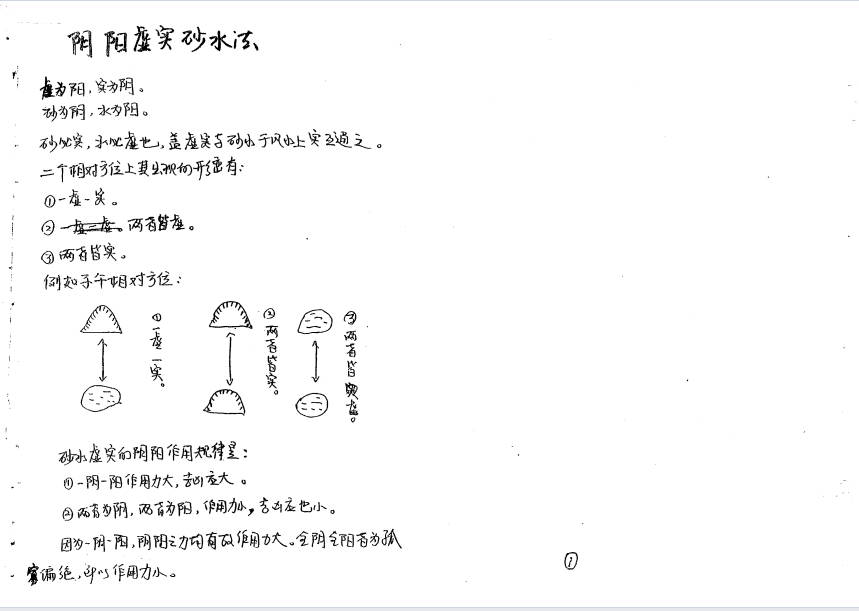 阴阳虚实砂水法
虚为阳,实为阴。
砂为阴,水为阳。
砂如实,水如虚也,盖虚实与砂水于风水上实互通之。
二个相对方位上其出现的形缠有:
①一虚一实。
②一虚二虚。两者皆虚。
③两者皆实。
例如子午相对方位:
①一虚一实。
②两者皆实。
③两者皆虚。
砂水虚实的阴阳作用规律是:
①一阴一阳作用力大,吉凶应大。
②两者为阴,两者为阳,作用力小,吉凶应也小。
因为一阴一阳,阴阳之力均有故作用力大。全阴全阳者为孤
寡偏绝,所以作用力小。
①